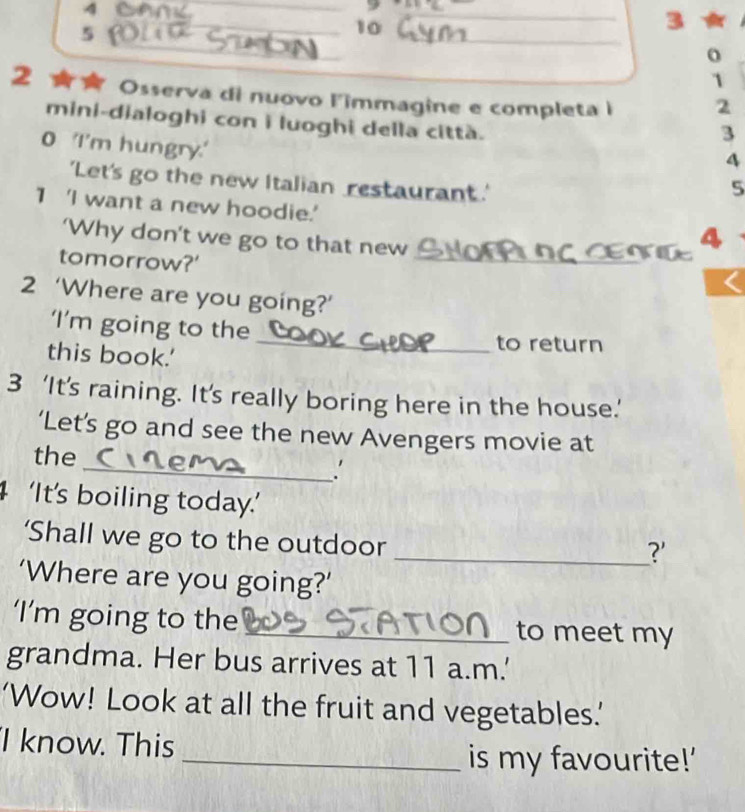 4 BANK 9
5 POLICE STATION 10 Gym
3
0
1
2
3
4
5
4
2 ★★ Osserva di nuovo l'immagine e completa i
mini-dialoghi con i luoghi della città.
0 'I'm hungry.'
'Let's go the new Italian restaurant.'
1 'I want a new hoodie.'
'Why don't we go to that new SHOPPING CENTRE
tomorrow?'
2 'Where are you going?'
'I'm going to the BOOK SHOP to return
this book.'
3 'It's raining. It's really boring here in the house.'
'Let's go and see the new Avengers movie at
the cinema.'
4 'It's boiling today.'
'Shall we go to the outdoor ?'
'Where are you going?'
'I'm going to the BUS STATION to meet my
grandma. Her bus arrives at 11 a.m.'
'Wow! Look at all the fruit and vegetables.'
'I know. This is my favourite!'